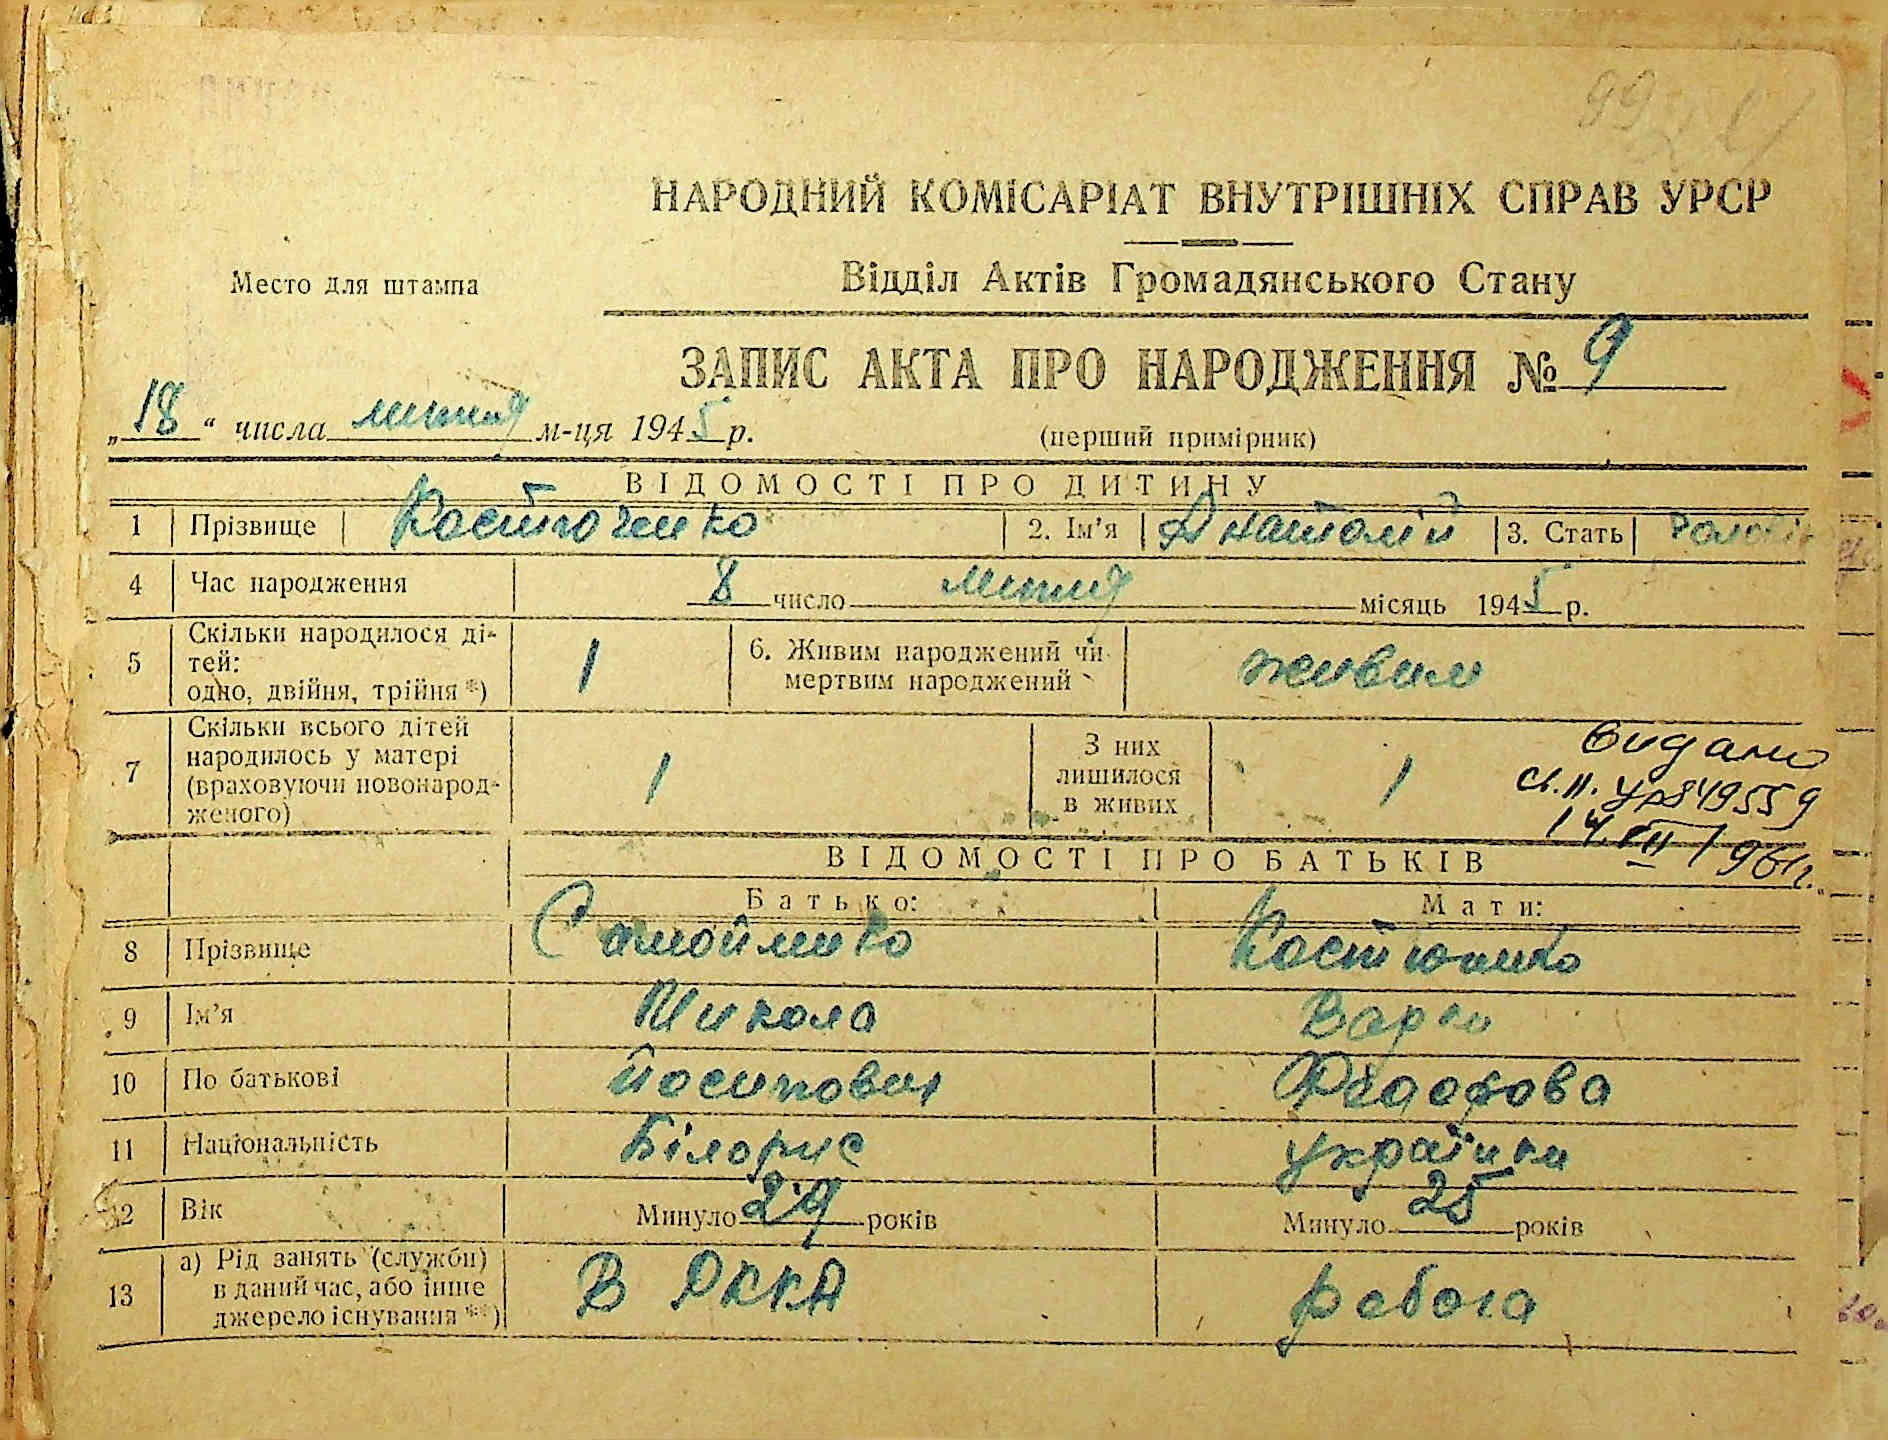 НАРОДНИЙ КОМІСАРІАТ ВНУТРІШНІХ СПРАВ УРСР
Место для штампа
Відділ Актів Громадянського Стану
ЗАПИС АКТА ПРО НАРОДЖЕННЯ № 9
„18“ числа липня м-ця 1945 р.
(перший примірник)
ВІДОМОСТІ ПРО ДИТИНУ
1 Прізвище Костюченко 2. Ім'я Анатолій 3. Стать
4 Час народження 8 число липня місяць 1945 р.
5 Скільки народилося ді-
тей:
одно, двійня, трійня *) 1 6. Живим народжений чи
мертвим народжений живим
7 Скільки всього дітей
народилось у матері
(враховуючи новонарод-
женого) 1 З них
лишилося
в живих 1
Видано
св. н. УР849559
14.VII 196
ВІДОМОСТІ ПРО БАТЬКІВ
Батько: Мати:
8 Прізвище Самойленко Костюченко
9 Ім'я Микола Варка
10 По батькові Йосипович Федотова
11 Національність Білорус українка
12 Вік Минуло 29 років Минуло 25 років
13 а) Рід занять (служби)
в даний час, або інше
джерело існування **) В РККА робота